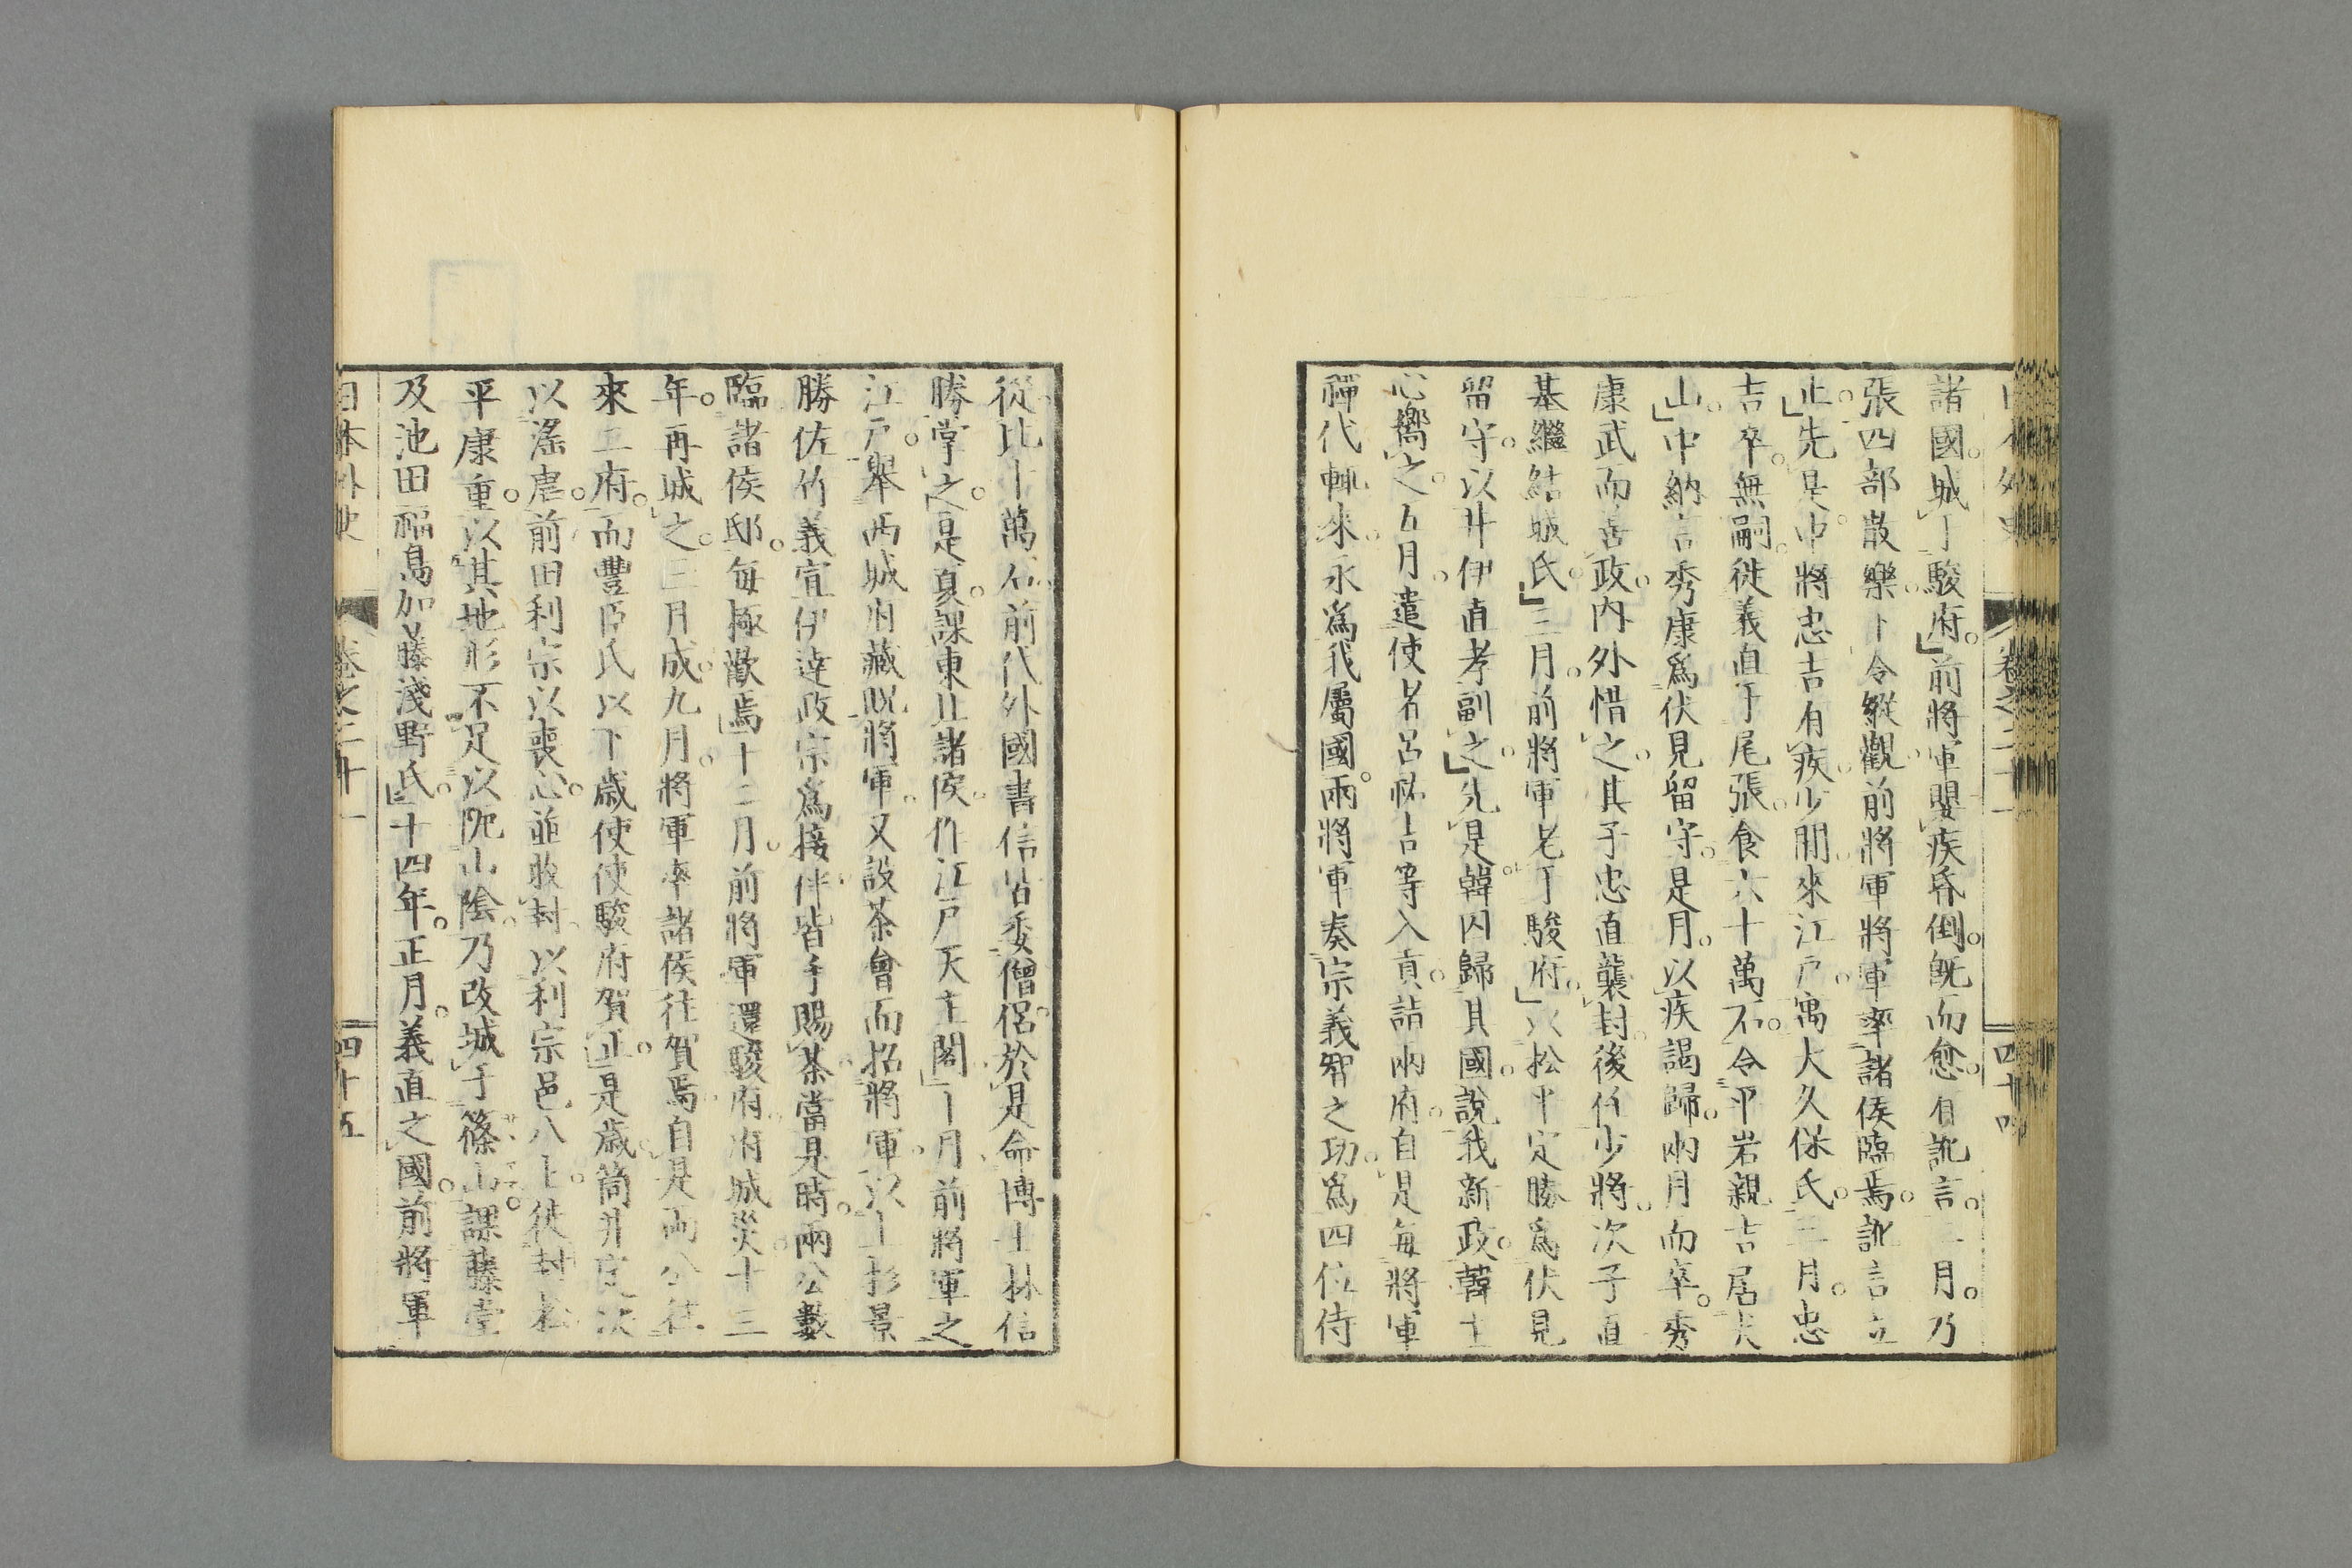 日本外史 卷之二十一 四十四
諸國城于駿府。前將軍嬰疾昏倒。既而愈。有訛言。二月。乃
張四部散樂。十令縱觀。前將軍將軍率諸侯臨焉。訛言立
止。先是。中將忠吉有疾。少閒來江戶。寓大久保氏。三月。忠
吉卒。無嗣。徙義直于尾張。食六十萬石。令平岩親吉居犬
山。中納言秀康爲伏見留守。是月。以疾謁歸。兩月而卒。秀
康武而善政。內外惜之。其子忠直襲封。後任少將。次子直
基繼結城氏。三月。前將軍老于駿府。以松平定勝爲伏見
留守。以井伊直孝副之。先是。韓囚歸其國。說我新政。韓主
心嚮之。五月。遣使者呂祐吉等入貢。詣兩府。自是每將軍
禪代輒來。永爲我屬國。兩將軍奏宗義智之功。爲四位侍
從。比十萬石。前代外國書信皆委僧侶。於是命博士林信
勝掌之。是夏。課東北諸侯。作江戶天主閣。十月。前將軍之
江戶。舉西城府藏貺將軍。又設茶會而招將軍。以上杉景
勝佐竹義宣伊達政宗爲接伴。皆手賜茶。當是時。兩公數
臨諸侯邸。每極歡焉。十二月。前將軍還駿府。府城災。十三
年。再城之。三月成。九月。將軍率諸侯往賀焉。自是兩公往
來二府。而豐臣氏以下歲使使駿府賀正。是歲。筒井定次
以滛虐。前田利宗以喪心。並收封。以利宗邑八上徙封松
平康重。以其地形不足以阨山陰。乃改城于篠山。課藤堂
及池田福島加藤淺野氏。十四年。正月。義直之國。前將軍
日本外史 卷之二十一 四十五